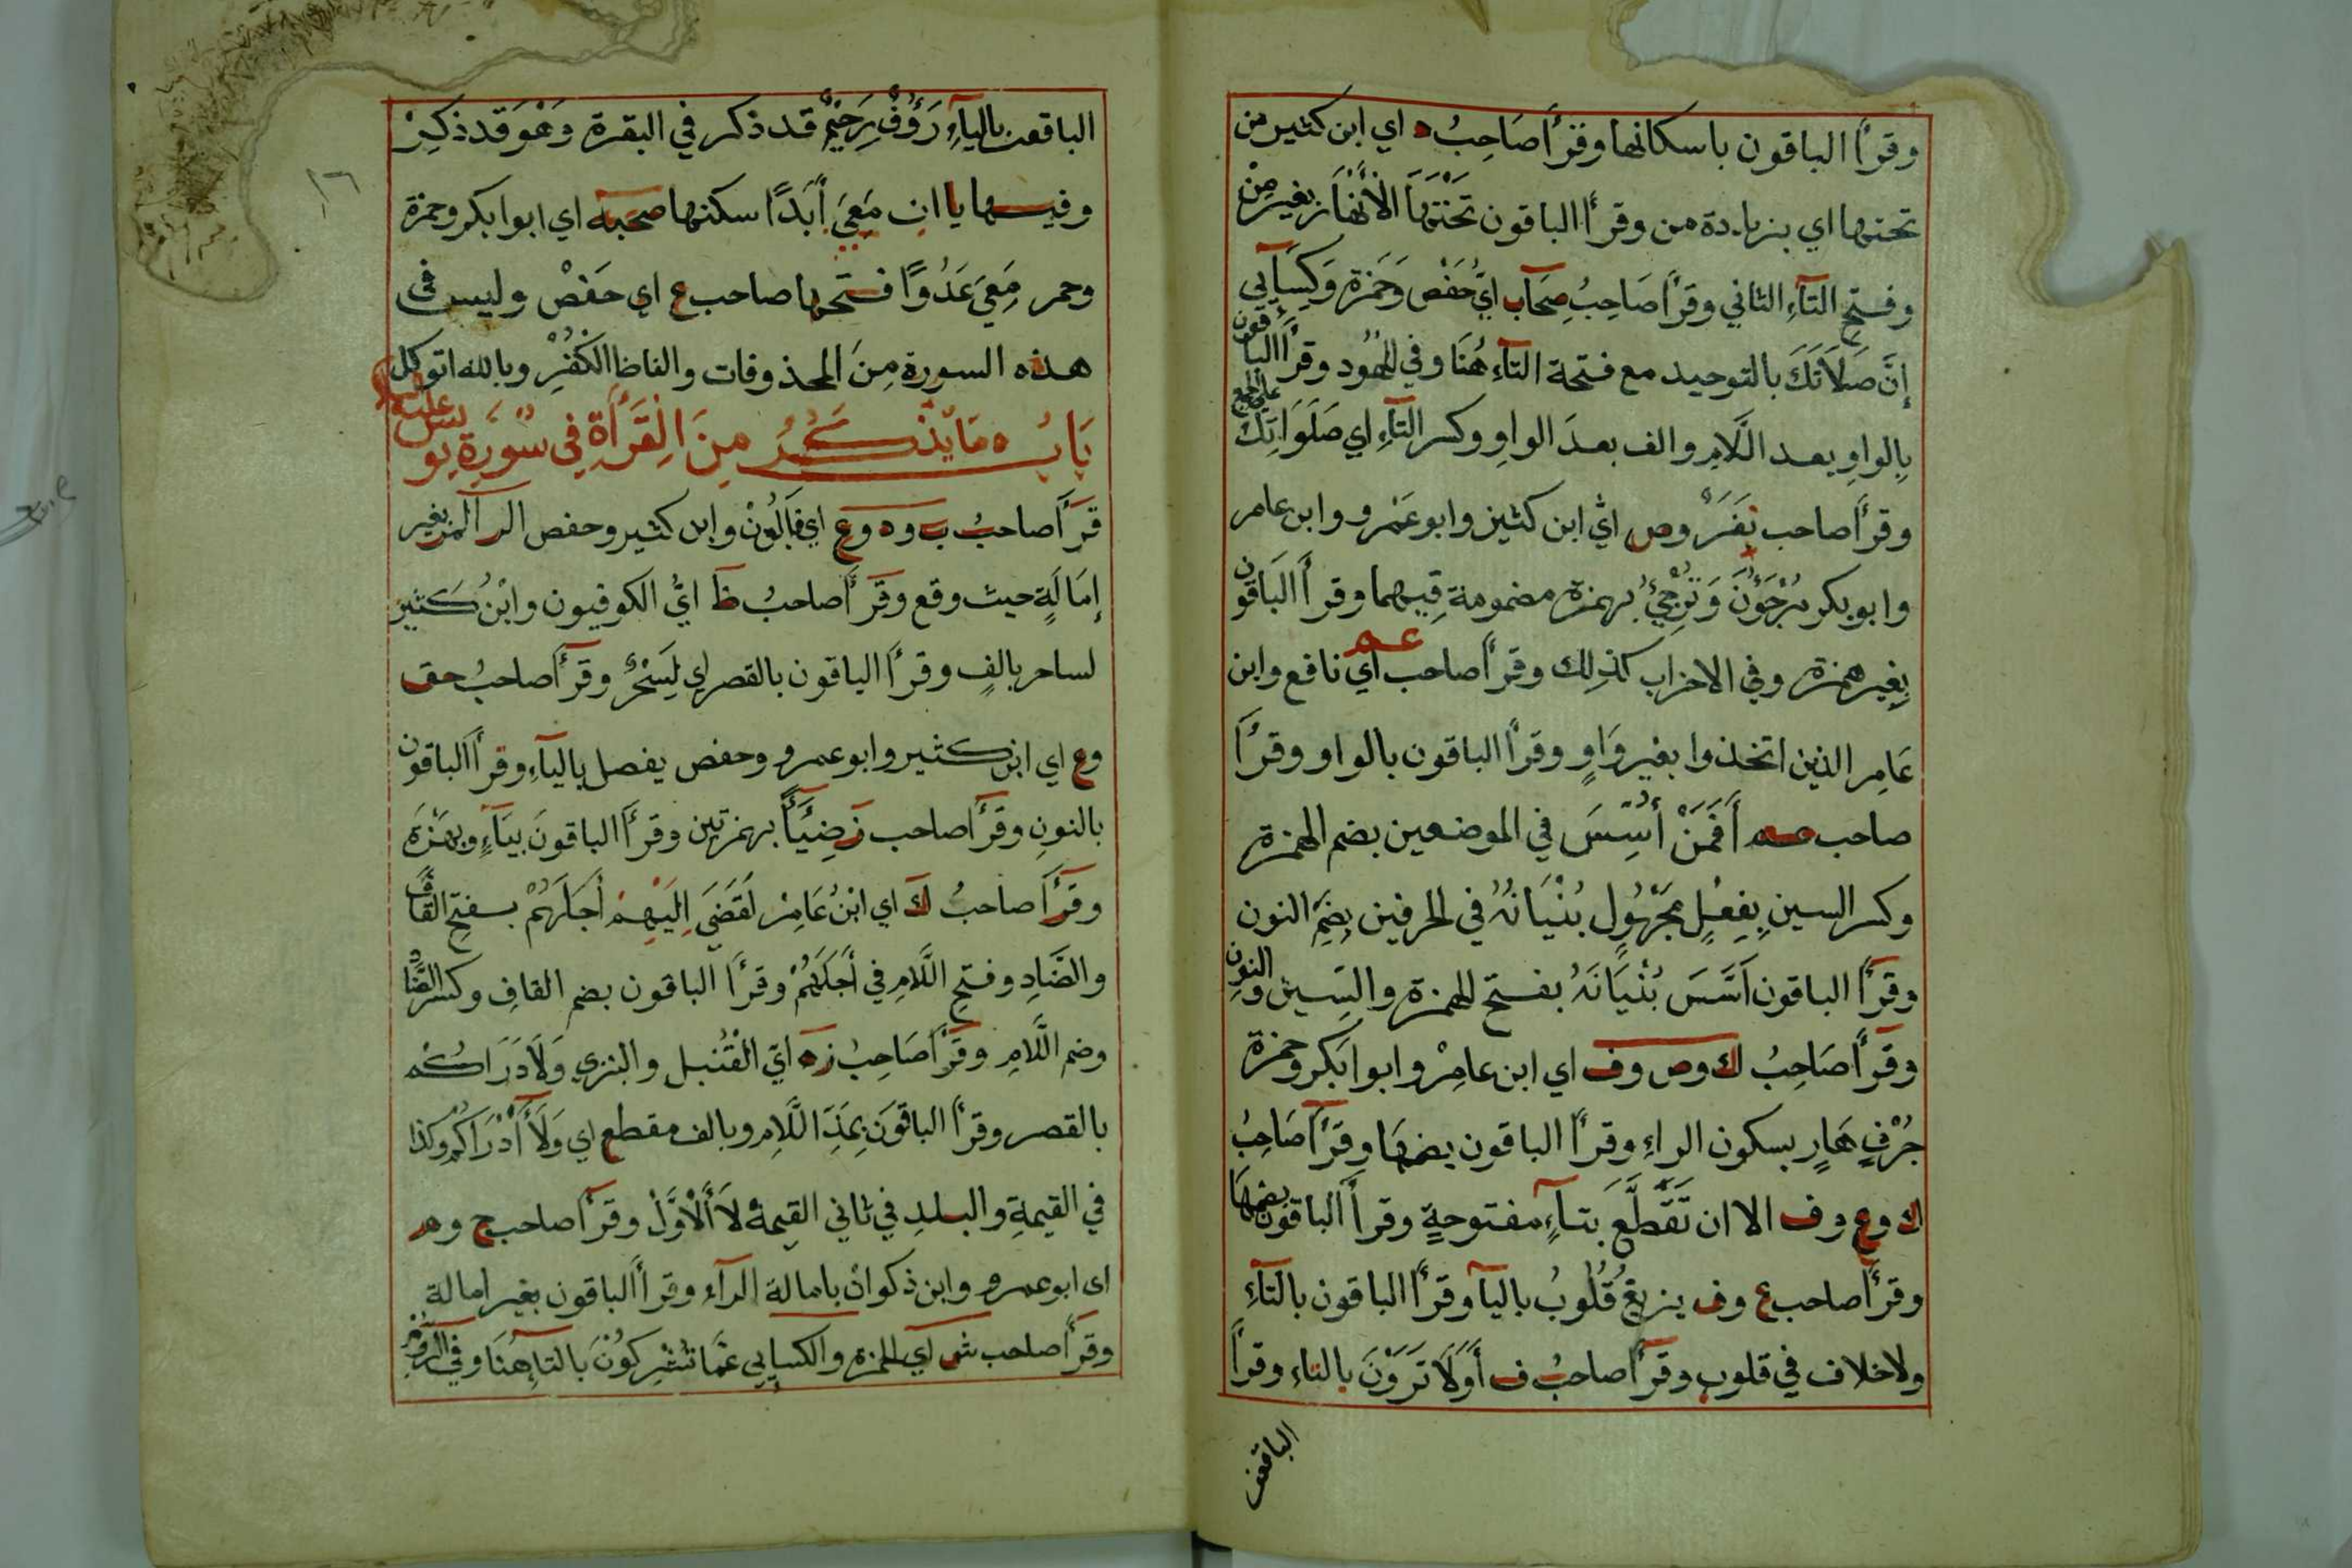 وقرأ الباقون باسكانها وقرأ صَاحِبُ ه اي ابن كثير من
تحتها اي بزيادة من وقرأ الباقون تَحْتَهَا الْأَنْهَارَ بغير مِنْ
وفتحِ التآءِ الثاني وقرأ صَاحِبُ صِحَآب ايْ حَفْص وَحَمَزة وَكِسَآيي
إنَّ صَلَاتَكَ بالتوحيد مع فتحة التآءِ هُنَا وفي الهُود وقرأ الباقون
بِالواوِ بعد اللَّامِ والف بعدَ الواوِ وكسر التآءِ اي صَلَوَاتِكَ على الجمع
وقرأ صاحب نَفَرَ وص ايْ ابن كثير وابو عَمْرو وابن عامر
وابو بكر مُرْجَؤُنَ وَتُرْجِئُ بهمزة مضمومة فِيهما وقرأ الباقون
بِغير همزة وفي الاحزاب كذلك وقرأ صاحب عم اي نافع وابن
عَامِر الذين اتخذوا بغير وَاوٍ وقرأ الباقون بالواو وقرأ
صاحب عم أَفَمَنْ أُسِّسَ في الموضعين بضم الهمزة
وكسر السين بِفِعْلٍ مَجْهُولٍ بُنْيَانُهُ في الحرفين بِضَمِّ النون
وقرأ الباقون اَسَّسَ بُنْيَانَهُ بفتح الهمزة والسِين والنونِ
وقرأ صَاحِبُ ك وص وف اي ابن عامِرْ وابوا بَكر وحمزة
جُرْفٍ هَارٍ بسكون الراءِ وقرأ الباقون بضمهَا وقرأ صَاحِبُ
ك وع وف الا ان تَقَطَّعَ بَتآءٍ مفتوحةٍ وقرأ الباقون بضمهَا
وقرأ صاحب ع وف يزيغ قُلُوبُ باليآ وقرأ الباقون بالتآءِ
ولا خلاف في قلوب وقرأ صاحبُ ف أَوَلَا تَرَوْنَ بالتاءِ وقرأ
الباقون
الباقون باليآءِ رَؤُفٌ رَحِيْمٌ قد ذكر في البقرة وَهْوَ قد ذكِرْ
وفيها يا ان مَعِيَ أَبَدًا سكنها صحبه اي ابوا بكر وحمزة
وحمر مَعِيَ عَدُوًّا فتحها صاحب ع اي حَفْصْ وليس فى
هذه السورة مِنَ المحذوفات والفاظ الكفْرِ وبالله اتوكل
بَابُ مَا يُذْكَرُ مِنَ الْقِرَأَةِ فِي سُوْرَةِ يونس عليه السلام
قرَأ صاحبُ ب وه وع اي قَالُوْنْ وابن كثير وحفص الر المر بغير
إمَالَةٍ حيث وقع وقَرَأ صاحبُ ظ ايْ الكوفيون وابْنُ كَثيْر
لساحر بالفٍ وقرأ الباقون بالقصر اي لَسِحْرٌ وقرأ صاحبُ حق
وع اي ابن كثير وابو عمرو وحفص يفصل باليآءِ وقرأ الباقون
بالنونِ وقرأ صاحب ز ضِئَآءً بهمزتين وقرأ الباقونَ بيَآءٍ وبهمْزَه
وقرأ صاحبُ ك اي ابْنُ عَامِرْ لَقَضَى اِلَيْهِمْ أجَلَهُمْ بفتحِ القاف
والضَّادِ وفتحِ اللَّامِ في أَجَلَهُمْ وقرأ الباقون بضم القافِ وكسر الضَّاد
وضم اللَّامِ وقرأ صَاحِبُ زه ايْ القُنْبل والبزي وَلَأَدْرَاكُمْ
بالقصر وقرأ الباقونَ بِمَدِّ اللَّامِ وبالف مقطع اي وَلَآ أَدْرَاكُمْ وكذا
في القيمةِ والبلدِ في ثاني القيمة لَا الْأَوَّلْ وقرأ صاحب ح وم
اى ابو عمرو وابن ذكوان بامالة الرآء وقرأ الباقون بغير امالة
وقرأ صاحب ش اي الحمزة والكسايي عَمَّا تُشْرِكُونَ بالتآءِ هُنَا وفي الروم